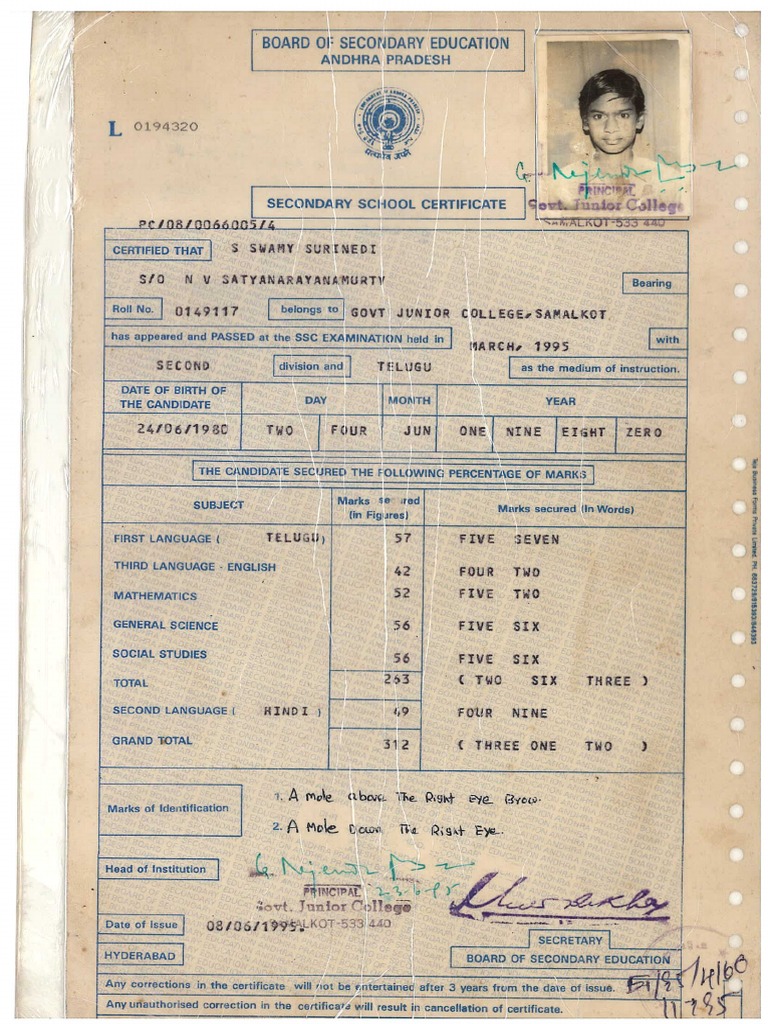 BOARD OF SECONDARY EDUCATION
ANDHRA PRADESH
L 0194320
SECONDARY SCHOOL CERTIFICATE
PRINCIPAL
Govt. Junior College
SAMALKOT-533 440
PC/08/0066005/4
CERTIFIED THAT S SWAMY SURINEDI
S/O N V SATYANARAYANAMURTV Bearing
Roll No. 0149117 belongs to GOVT JUNIOR COLLEGE, SAMALKOT
has appeared and PASSED at the SSC EXAMINATION held in MARCH, 1995 with
SECOND division and TELUGU as the medium of instruction.
DATE OF BIRTH OF THE CANDIDATE DAY MONTH YEAR
24/06/1980 TWO FOUR JUN ONE NINE EIGHT ZERO
THE CANDIDATE SECURED THE FOLLOWING PERCENTAGE OF MARKS
SUBJECT Marks secured (in Figures) Marks secured (In Words)
FIRST LANGUAGE ( TELUGU) 57 FIVE SEVEN
THIRD LANGUAGE - ENGLISH 42 FOUR TWO
MATHEMATICS 52 FIVE TWO
GENERAL SCIENCE 56 FIVE SIX
SOCIAL STUDIES 56 FIVE SIX
TOTAL 263 ( TWO SIX THREE )
SECOND LANGUAGE ( HINDI ) 49 FOUR NINE
GRAND TOTAL 312 ( THREE ONE TWO )
Marks of Identification
1. A mole above The Right eye Brow.
2. A Mole Down The Right Eye.
Head of Institution
PRINCIPAL
Govt. Junior College
SAMALKOT-533 440
Date of Issue 08/06/1995.
HYDERABAD
SECRETARY
BOARD OF SECONDARY EDUCATION
Any corrections in the certificate will not be entertained after 3 years from the date of issue.
Any unauthorised correction in the certificate will result in cancellation of certificate.